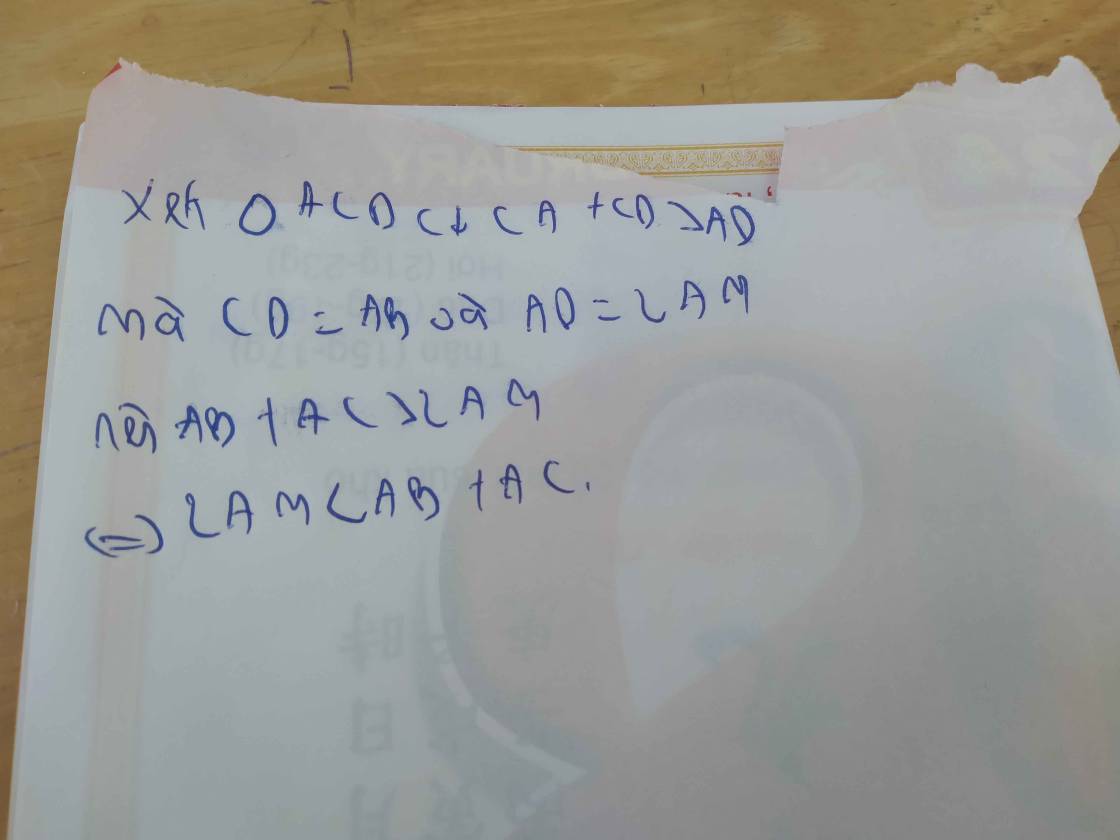 Xét △ ACD có CA + CD > AD
mà CD = AB và AD = 2AM
nên AB + AC > 2AM
(=) 2AM < AB + AC.